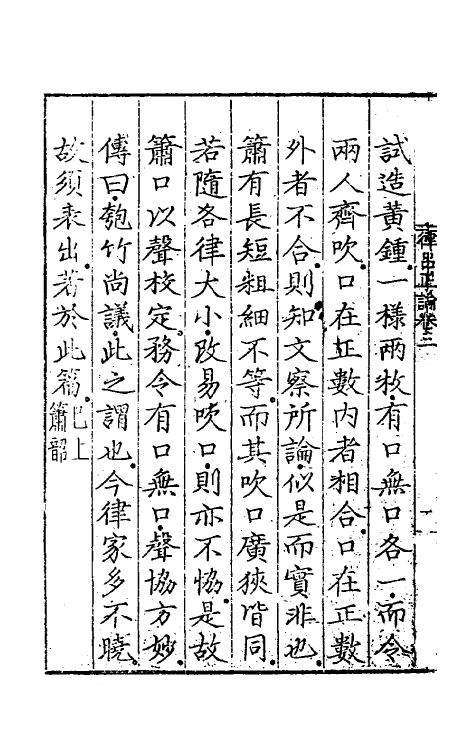 試造黃鍾一樣兩枚有口無口各一而令
兩人齊吹口在正數内者相合口在正數
外者不合則知文察所論似是而實非也
簫有長短粗細不等而其吹口廣狹皆同
若隨各律大小改易吹口則亦不恊是故
簫口以聲校定務令有口無口聲協方妙
傳曰匏竹尚議此之謂也今律家多不曉
故須表出著於此篇已上簫韶
律呂正論卷三